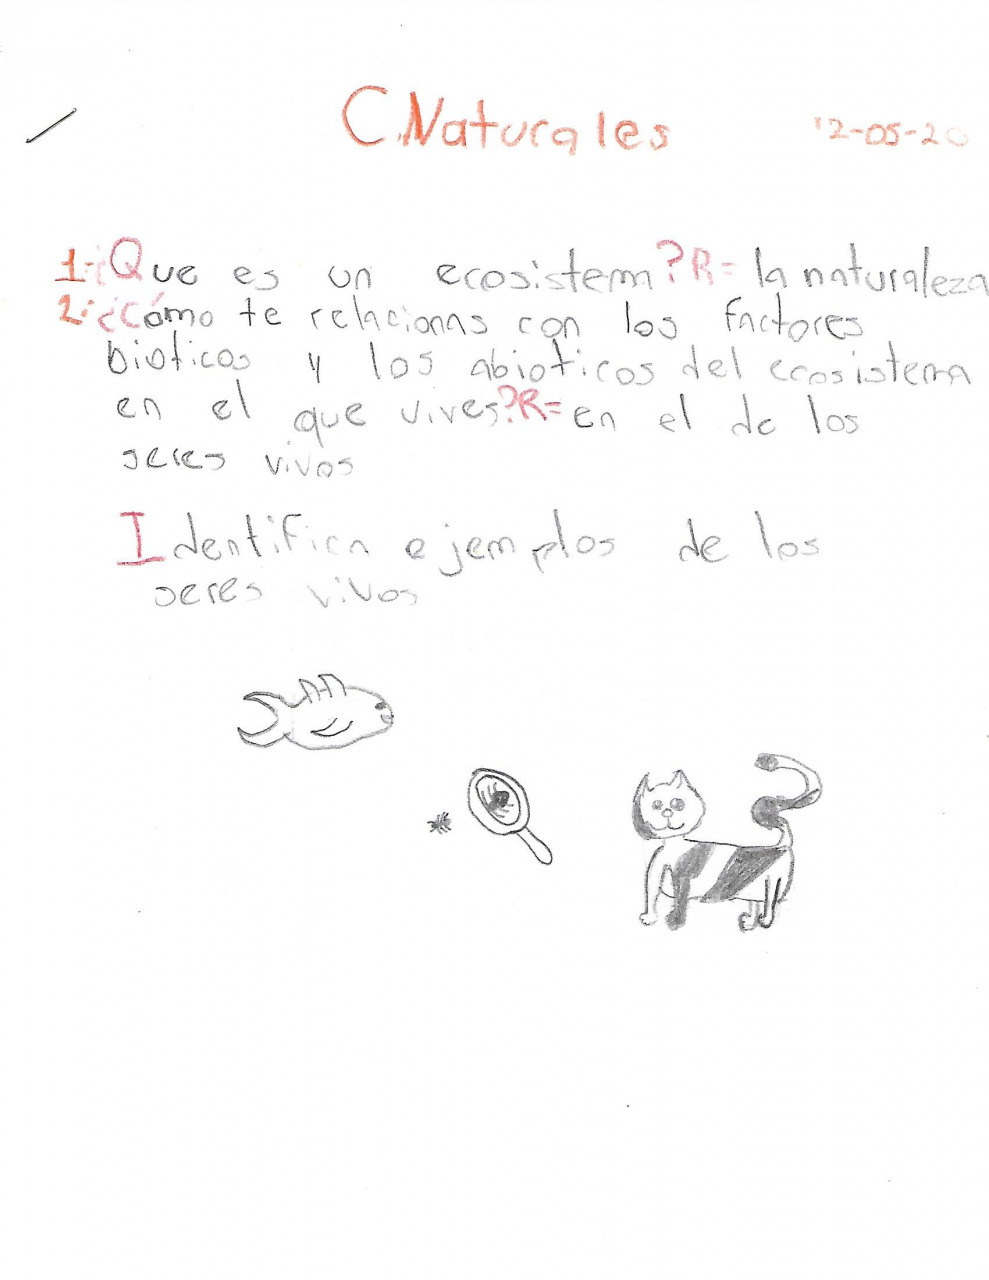 C.Naturales 12-05-20
1-¿Que es un ecosistema? R= la naturaleza
2-¿Cómo te relacionas con los factores
bioticos y los abioticos del ecosistema
en el que vives? R= en el de los
seres vivos
Identifica ejemplos de los
seres vivos